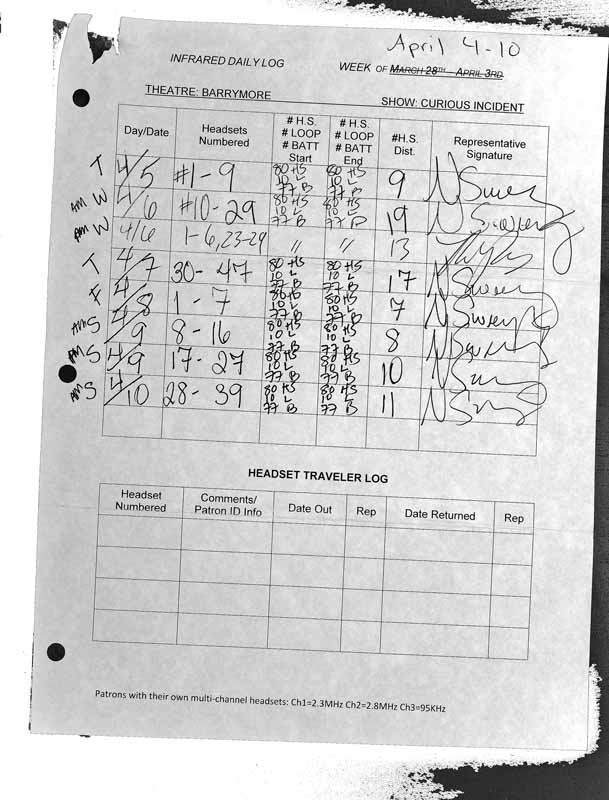 April 4-10
INFRARED DAILY LOG
WEEK OF MARCH 28TH - APRIL 3RD
THEATRE: BARRYMORE
SHOW: CURIOUS INCIDENT
Day/Date Headsets Numbered # H.S. # LOOP # BATT Start # H.S. # LOOP # BATT End #H.S. Dist. Representative Signature
T 4/5 #1-9 80 HS 10 L 77 B 80 HS 10 L 77 B 9
AM W 4/6 #10-29 80 HS 10 L 77 B 80 HS 10 L 77 B 19
PM W 4/6 1-6, 23-29 〃 〃 13
T 4/7 30-47 80 HS 10 L 77 B 80 HS 10 L 77 B 17
F 4/8 1-7 80 HS 10 L 77 B 80 HS 10 L 77 B 7
AM S 4/9 8-16 80 HS 10 L 77 B 80 HS 10 L 77 B 8
PM S 4/9 17-27 80 HS 10 L 77 B 80 HS 10 L 77 B 10
AM S 4/10 28-39 80 HS 10 L 77 B 80 HS 10 L 77 B 11
HEADSET TRAVELER LOG
Headset Numbered Comments/ Patron ID Info Date Out Rep Date Returned Rep
Patrons with their own multi-channel headsets: Ch1=2.3MHz Ch2=2.8MHz Ch3=95KHz